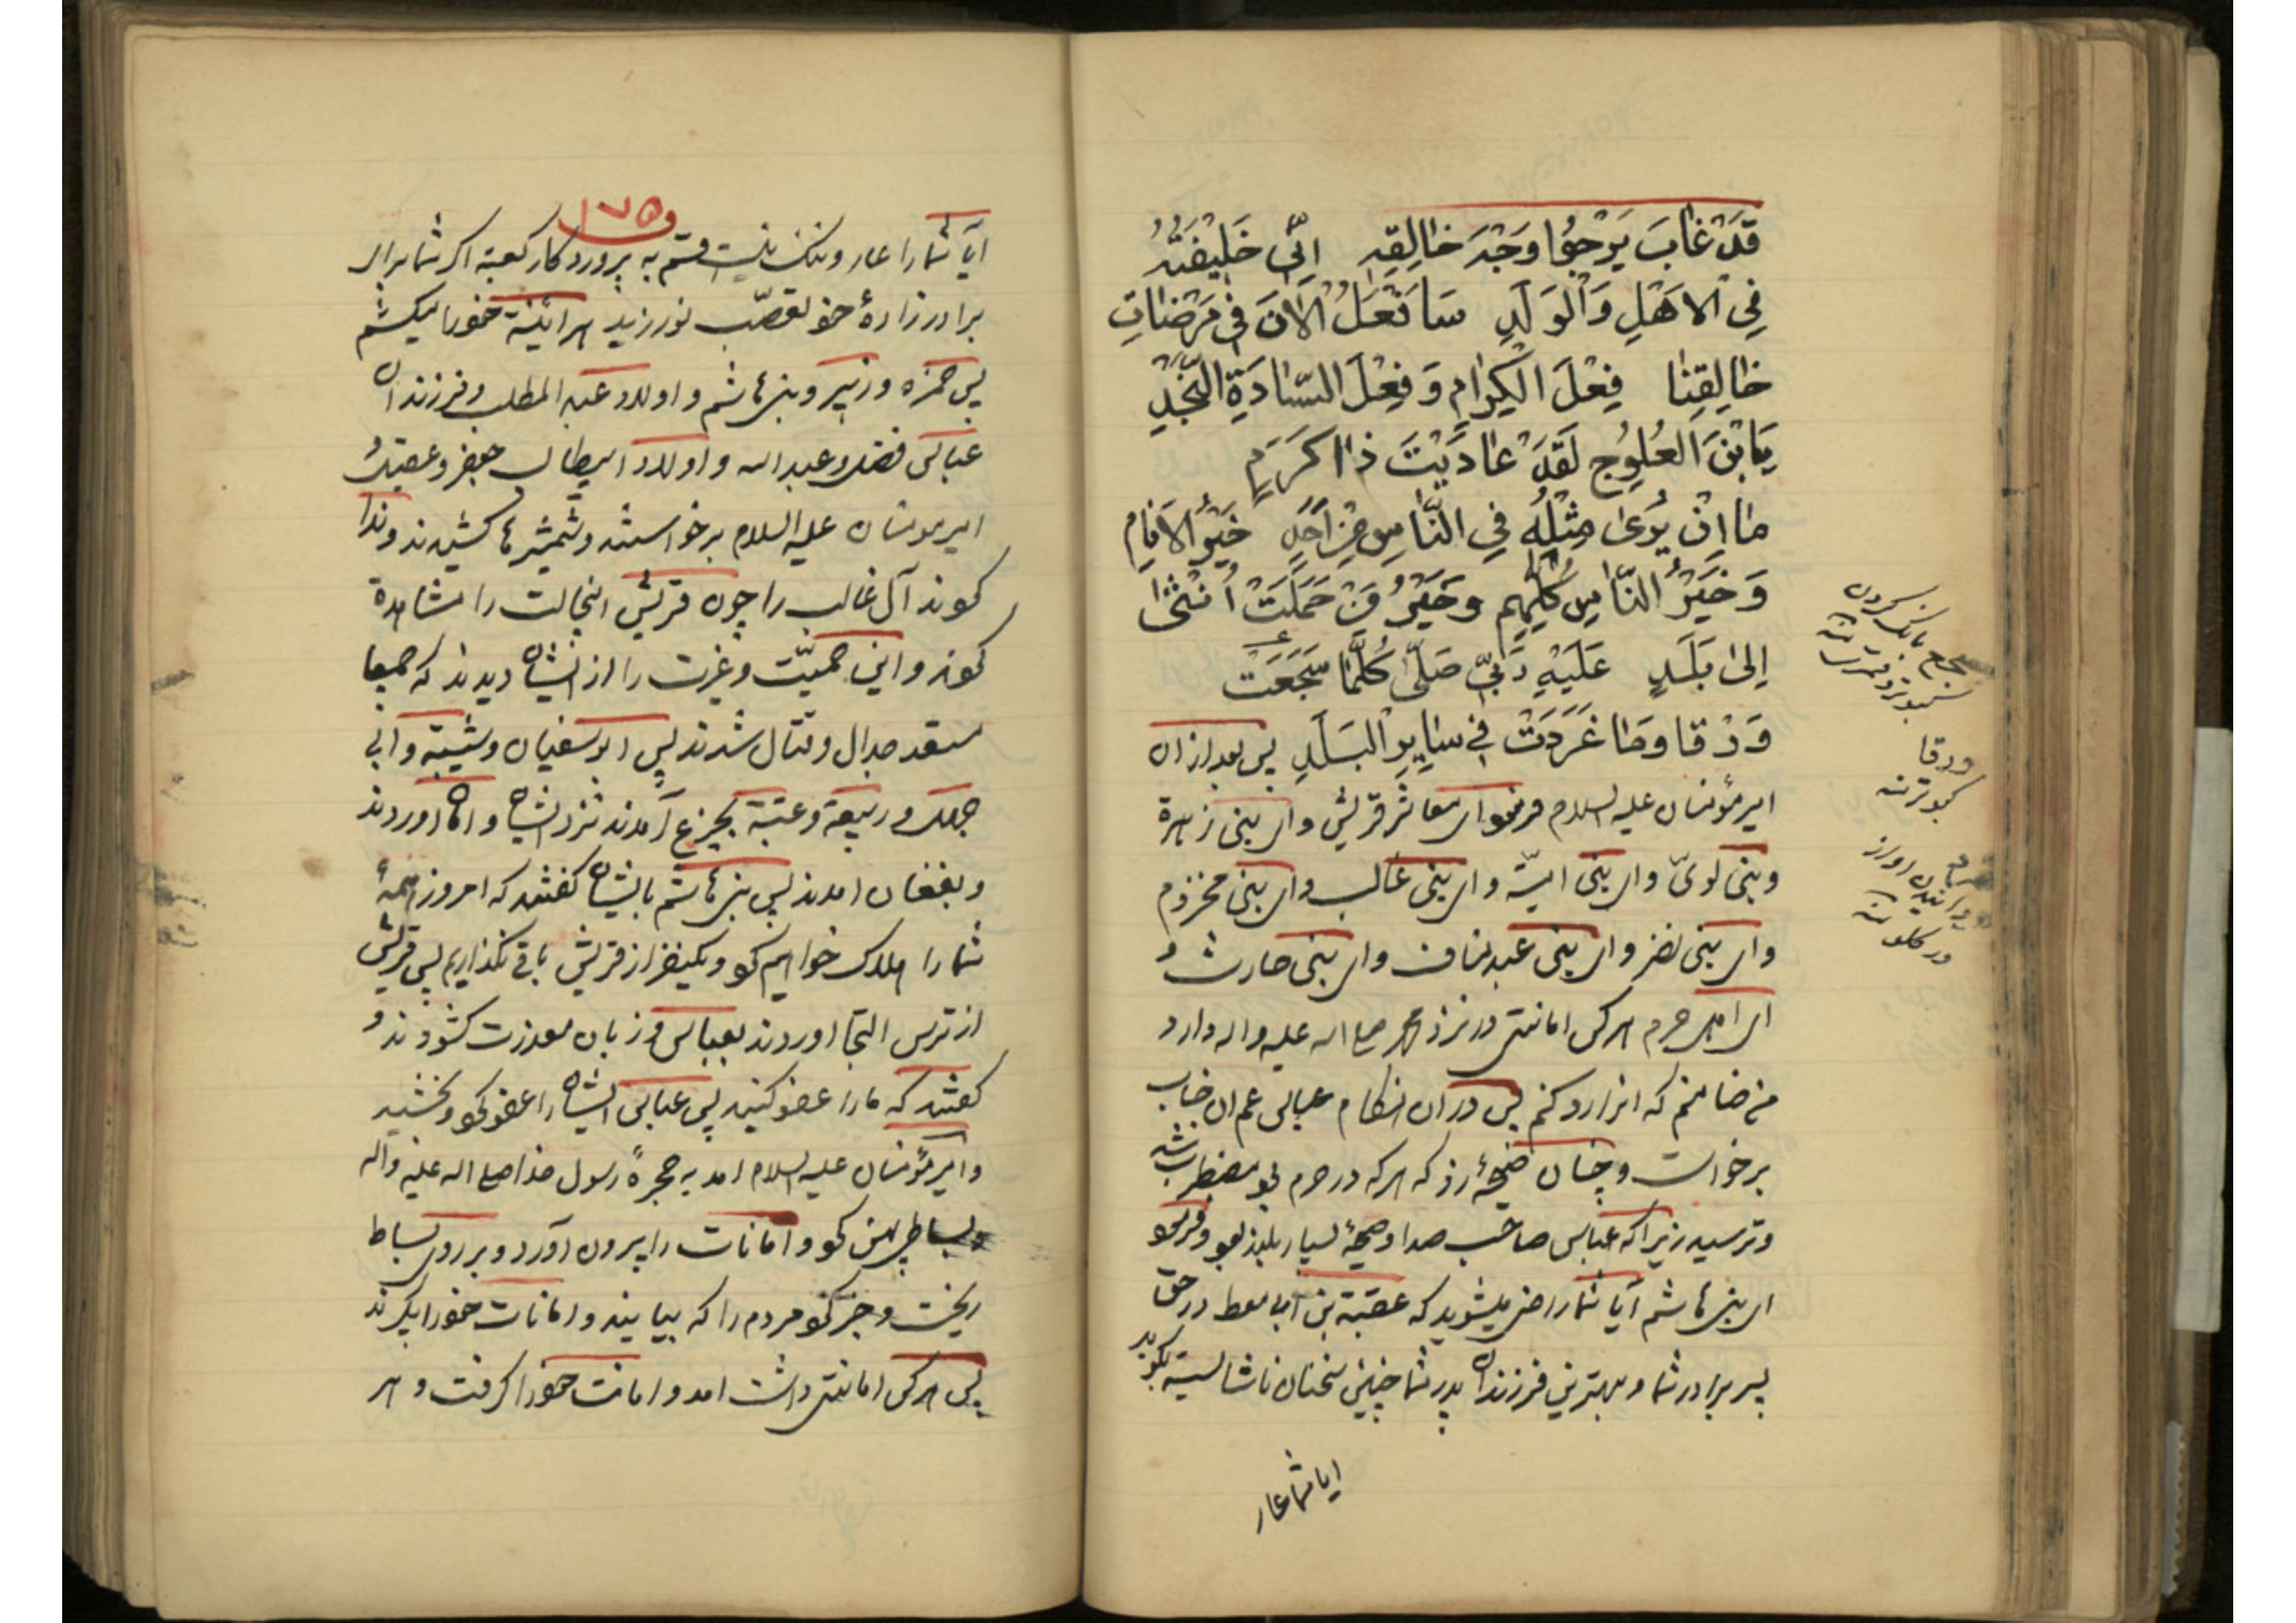 قَدْ غَابَ يَرْجُوا وَجْدَ خَالِقِهِ اِنّی خَلِیْفَتُهُ
فِی الْاَهْلِ وَالْوَلَدِ سَاَفْعَلُ الْاٰنَ فِی مَرْضَاتِ
خَالِقِنَا فِعْلَ الْکِرَامِ وَ فِعْلَ السَّادَةِ النُّجُدِ
یَابْنَ الْعُلُوجِ لَقَدْ عَادَیْتَ ذَا کَرَمٍ
مَا اِنْ یُرَیٰ مِثْلُهُ فِی النَّاسِ مِنْ اَحَدٍ خَیْرُ الْاَنَامِ
وَ خَیْرُ النَّاسِ کُلِّهِمِ وَ خَیْرُ مَنْ حَمَلَتْ اُنْثَیٰ
اِلیٰ بَلَدِ عَلَیْهِ رَبّی صَلّیٰ کُلَّمَا سَجَعَتْ
وَرْقَا وَمَا غَرَدَتْ فِی سَایِرِ الْبَلَدِ پس بعد از ان
امیرمؤمنان علیه السلام فرمود ای معاشر قریش و ای بنی زهرة
و بنی لویّ و ای بنی امیّة و ای بنی غالب و ای بنی مخزوم
و ای بنی نضر و ای بنی عبد مناف و ای بنی حارث و
ای اهل حرم هر کس امانتی در نزد محمد صلی اله علیه و اله دارد
من ضامنم که انرا رد کنم پس در ان هنگام عباس عم ان جناب
برخواست و چنان ضیحهٔ زد که هر که در حرم بود مضطرب شد
و ترسید زیرا که عباس صاحب صدا و صیحهٔ بسیار بلند بود و فرمود
ای بنی هاشم آیا شما راضی میشوید که عقبة بن ابی معط در حق
پسر برادر شما و بهترین فرزندان پدر شما چنین سخنان ناشایسته بگوید
ایا شما عار
سجع بانک کردن
کبوتر و قمریست
ورقا
کبوترنه
اواز
در کلو
۱۷۵
آیا شما را عار و ننک نیست قسم به پروردکار کعبه اکر شما برای
برادر زادهٔ خود تعصّب نورزید هرائینه خود را میکشم
پس حمزه و زبیر و بنی هاشم و اولاد عبد المطلب و فرزندان
عباس فضل و عبد اله و اولاد ابیطالب جعفر و عقیل و
امیرمومنان علیه السلام برخواستند و شمشیرها کشیدند و ندا
کردند آل غالب را چون قریش اینحالت را مشاهدة
کردند و این حمیّت و غیرت را از ایشان دیدند که جمیعا
مستعد جدال و قتال شدند پس ابوسفیان و شیبة و ابی
جهل و ربیعة و عتبة بجزع آمدند نزد ایشان و اوردند
و بفغان امدند پس بنی هاشم بایشان کفتند که امروز همهٔ
شما را هلاک خواهیم کرد و یکنفر از قریش باقی نکذاریم پس قریش
از ترس التجا اوردند بعباس و زبان معذرت کشودند و
کفتند که ما را عفو کنید پس عباس ایشان را عفو کرد و بخشید
و امیرمؤمنان علیه السلام امد به حجرهٔ رسول خدا صلی اله علیه و اله
و بساط پهن کرد و امانات را بیرون آورد و بر روی بساط
ریخت و خبر کرد مردم را که بیایند و امانات خود را بکیرند
پس هر کس امانتی داشت امد و امانت خود را کرفت و هر